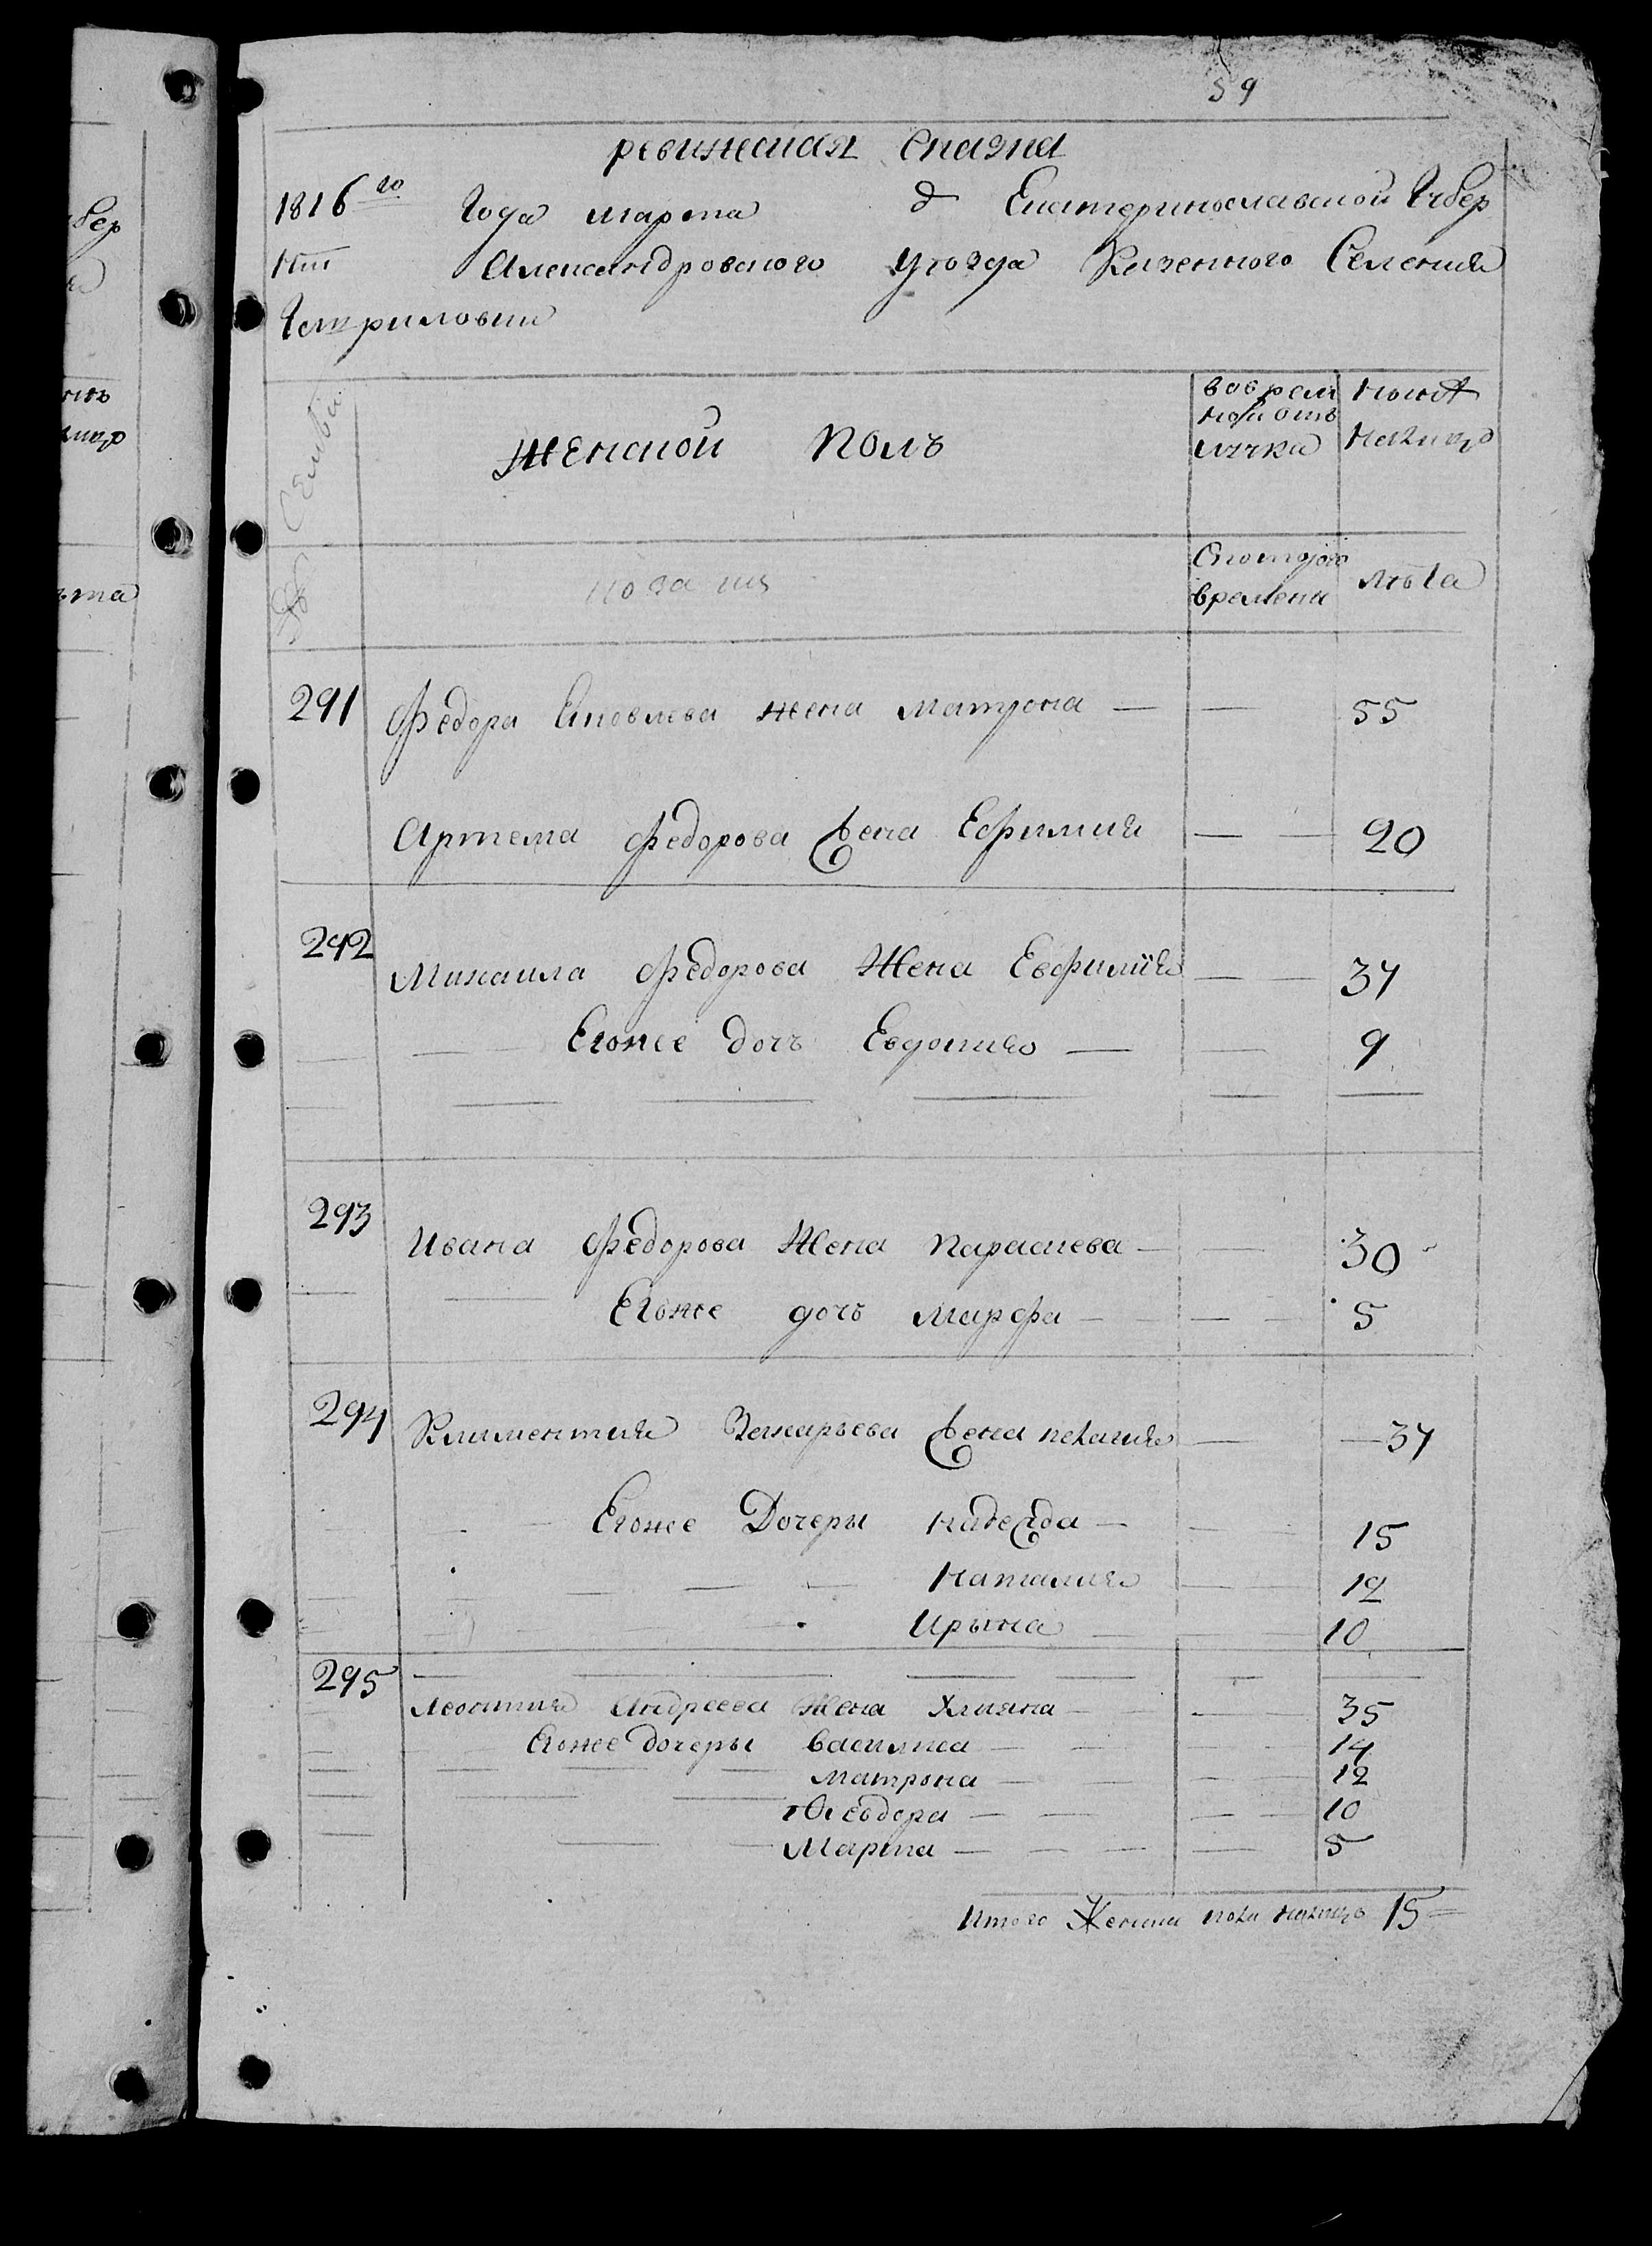 59
ревижская сказка
1816го Года марта д Екатеринославской Губер
нии Александровского уѣзда Казенного Селения
семьи
женской полъ
вовремен
ной отъ
лучки
нынѣ
налицо
№
Скоторого
времени
лѣта
291 Федора Яковлева жена матрона — — 55
Артема федорова жена Ефимия — — 20
292 Михаила федорова Жена Евфимия — — 37
Егожее дочъ Евдокия — — 9
293 Ивана федорова Жена параскева — — 30
Егожее дочъ Марфа — — 5
294 Климентия Захарьева жена пелагия — — 37
Егожее Дочеры надежда — — 15
наталия — 12
Ирына — 10
295 Леонтия Андреева Жена Улияна — — 35
Егожее дочеры василиса — — 14
матрона — — 12
Феодора — — 10
Марина — — 5
Итого Женска пола налицо 15